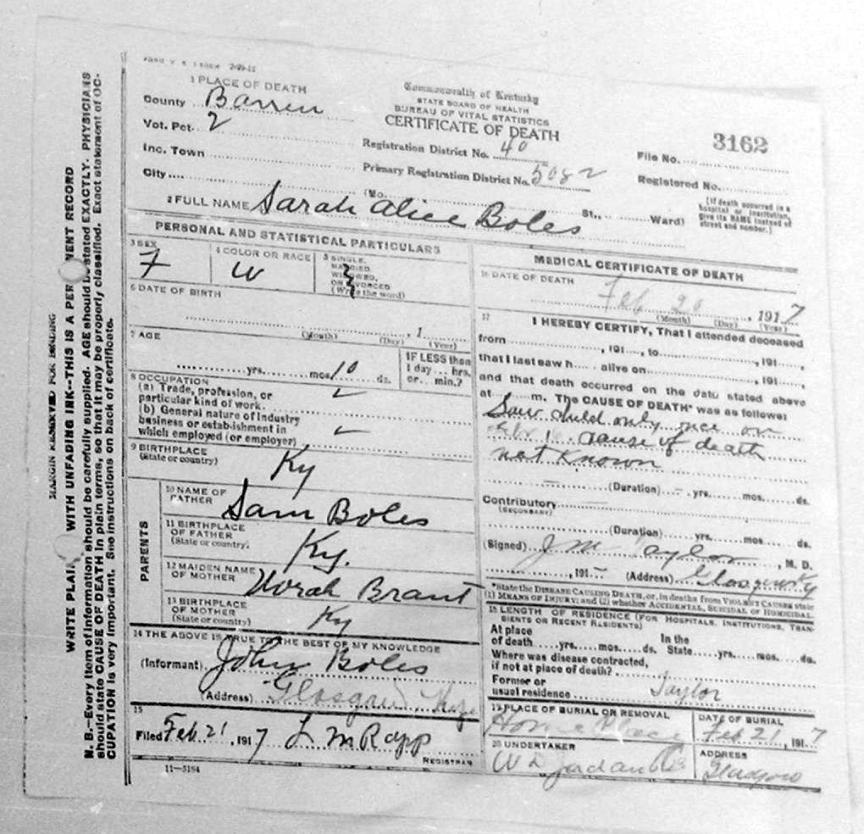 FORM V. S.
1 PLACE OF DEATH
County Barren
Vot. Pct. 2
Inc. Town
City
Commonwealth of Kentucky
STATE BOARD OF HEALTH
BUREAU OF VITAL STATISTICS
CERTIFICATE OF DEATH
Registration District No. 40
Primary Registration District No. 5082
(No. St., Ward)
3162
File No.
Registered No.
[If death occurred in a
hospital or institution,
give its NAME instead of
street and number.]
2 FULL NAME Sarah Alice Boles
PERSONAL AND STATISTICAL PARTICULARS
3 SEX
F
4 COLOR OR RACE
W
5 SINGLE,
MARRIED,
WIDOWED,
OR DIVORCED
(Write the word)
6 DATE OF BIRTH
, 1
(Month) (Day) (Year)
7 AGE
yrs. mos 10 ds.
IF LESS than
1 day hrs.
or min.?
8 OCCUPATION
(a) Trade, profession, or
particular kind of work
(b) General nature of industry
business or establishment in
which employed (or employer)
9 BIRTHPLACE
(State or country)
Ky
PARENTS
10 NAME OF
FATHER
Sam Boles
11 BIRTHPLACE
OF FATHER
(State or country)
Ky.
12 MAIDEN NAME
OF MOTHER
Norah Brant
13 BIRTHPLACE
OF MOTHER
(State or country)
Ky
14 THE ABOVE IS TRUE TO THE BEST OF MY KNOWLEDGE
(Informant) John Boles
(Address) Glasgow
15
Filed Feb 21, 1917 L M Rapp
REGISTRAR
11-5184
MEDICAL CERTIFICATE OF DEATH
16 DATE OF DEATH
Feb 20, 1917
(Month) (Day) (Year)
17 I HEREBY CERTIFY, That I attended deceased
from , 191 , to , 191 ,
that I last saw h alive on , 191 ,
and that death occurred on the date stated above
at m. The CAUSE OF DEATH* was as follows:
Saw child only once on
cause of death
not Known
(Duration) yrs. mos. ds.
Contributory
(SECONDARY)
(Duration) yrs. mos. ds.
(Signed) J M Taylor, M. D.
, 191 (Address) Glasgow Ky
*State the DISEASE CAUSING DEATH, or, in deaths from VIOLENT CAUSES state
(1) MEANS OF INJURY; and (2) whether ACCIDENTAL, SUICIDAL OR HOMICIDAL.
18 LENGTH OF RESIDENCE (FOR HOSPITALS, INSTITUTIONS, TRAN-
SIENTS OR RECENT RESIDENTS)
At place In the
of death yrs. mos. ds. State yrs. mos. ds.
Where was disease contracted,
if not at place of death?
Former or
usual residence Taylor
19 PLACE OF BURIAL OR REMOVAL
Home Place
DATE OF BURIAL
Feb 21, 1917
20 UNDERTAKER
W D Jordan
ADDRESS
Glasgow
MARGIN RESERVED FOR BINDING
WRITE PLAIN WITH UNFADING INK--THIS IS A PER NENT RECORD
N. B.--Every item of information should be carefully supplied. AGE should be stated EXACTLY. PHYSICIANS
should state CAUSE OF DEATH in plain terms, so that it may be properly classified. Exact statement of OC-
CUPATION is very important. See instructions on back of certificate.